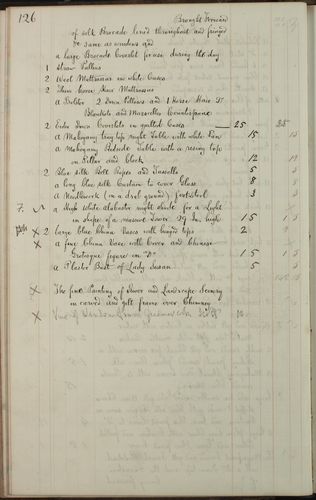 126
Brought Forward
of silk Brocade lined throughout and fringed
same as windows and
a large Brocade Coverlet for use during the day
1 Straw Pallias
2 Wool Mattrasses in white Cases
2 Horse Hair Mattrasses
a Bolster 2 Down Pillows and 1 Horse Hair Do
Blankets and Marseilles Counterpane
2 Eider Down Coverlets in quilted Cases 25 25
a Mahogany tray top night Table with white Pan 15 15
a Mahogany Bedside Table with a rising top
on Pillar and block 12 12
2 Blue silk Bell Ropes and Tassells 5 5
a long blue silk Curtain to cover Glass 8 8
a Needlework (on a drab ground) footstool 3 3
7. a High White alabaster night shade for a Light
in shape of a massive Tower 29 In. high 1 5 1 5
2 large blue China Vases with hinged tops 2
X a fine China Vase with Cover and Chinese
Grotesque figure in Do 1 5 1 5
a Plaster Bust of Lady Susan 5 5
X The fine Painting of River and Landscape Scenery
in carved and gilt frame over Chimney
X View of London from Greenwich 10